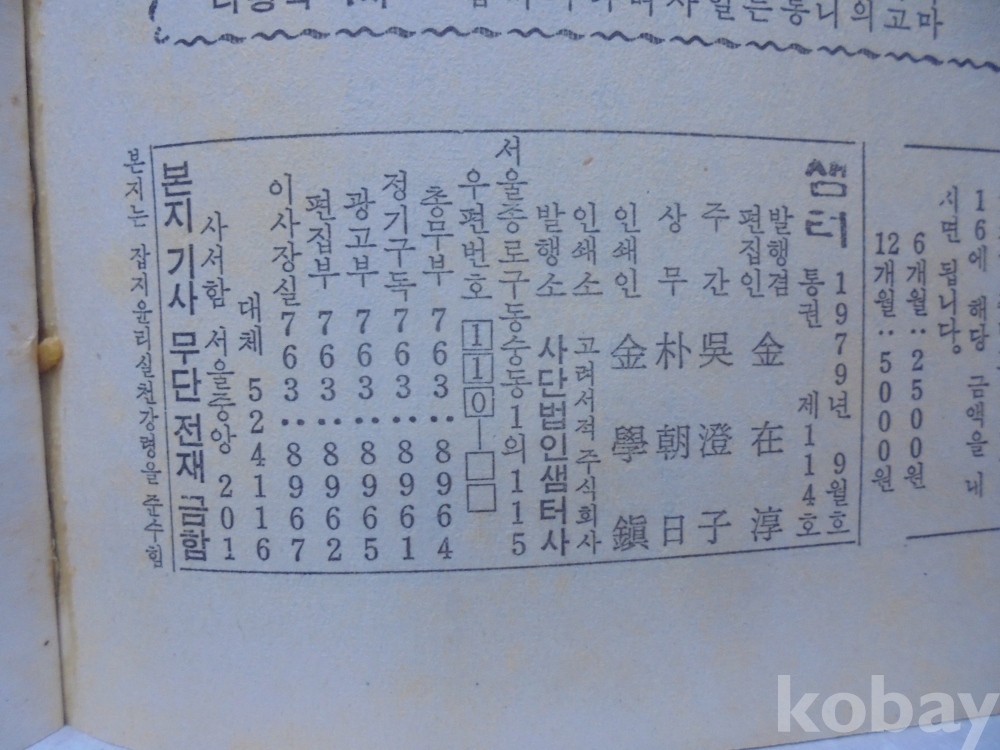 16에 해당 금액을 내
시면 됩니다.
6개월 : 2500원
12개월 : 5000원
샘터 1979년 9월호
통권 제114호
발행겸
편집인 金在淳
주간 吳澄子
상무 朴朝日
인쇄인 金學鎭
인쇄소 고려서적주식회사
발행소 사단법인샘터사
서울종로구동숭동1의115
우편번호 110-□□
총무부 763··8964
정기구독 763··8961
광고부 763··8965
편집부 763··8962
이사장실 763··8967
대체 524116
사서함 서울중앙 201
본지 기사 무단 전재 금함
본지는 잡지윤리실천강령을 준수함
kobay